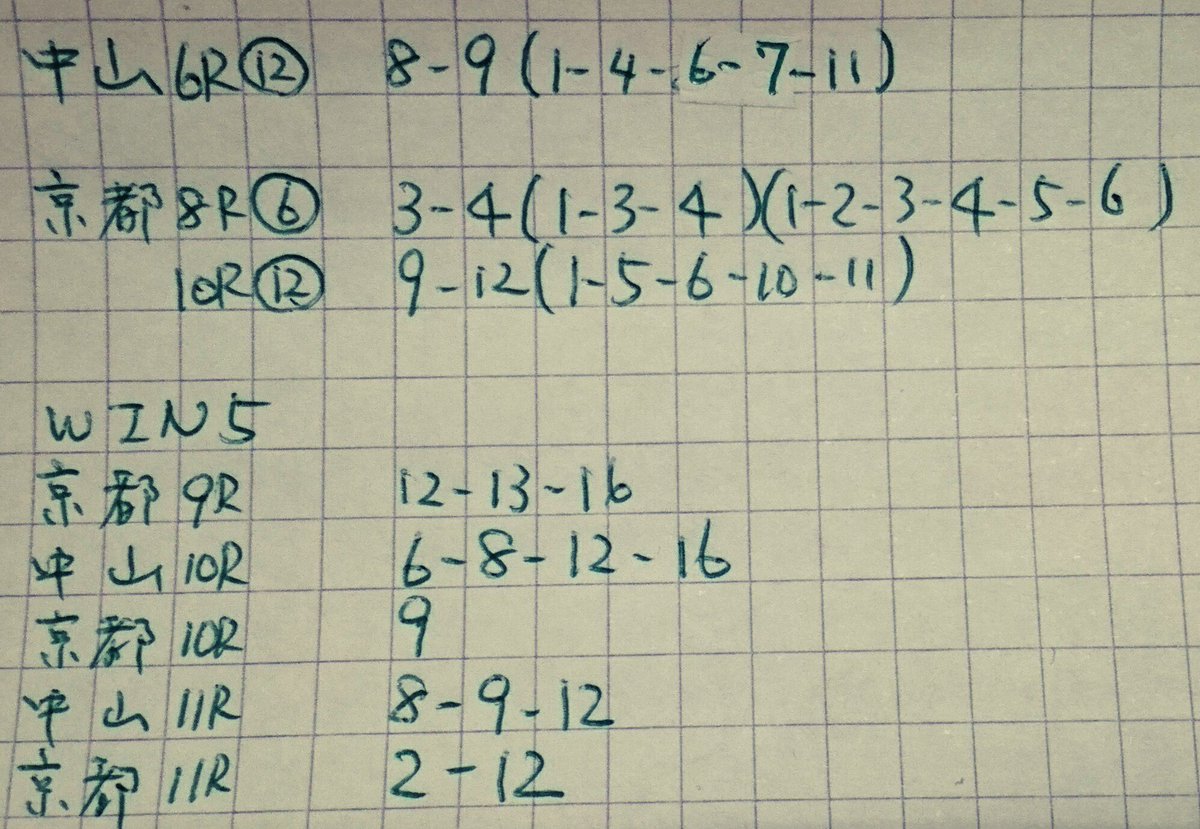 中山6R⑫ 8-9(1-4-6-7-11)
京都8R⑥ 3-4(1-3-4)(1-2-3-4-5-6)
10R⑫ 9-12(1-5-6-10-11)
WIN5
京都9R 12-13-16
中山10R 6-8-12-16
京都10R 9
中山11R 8-9-12
京都11R 2-12